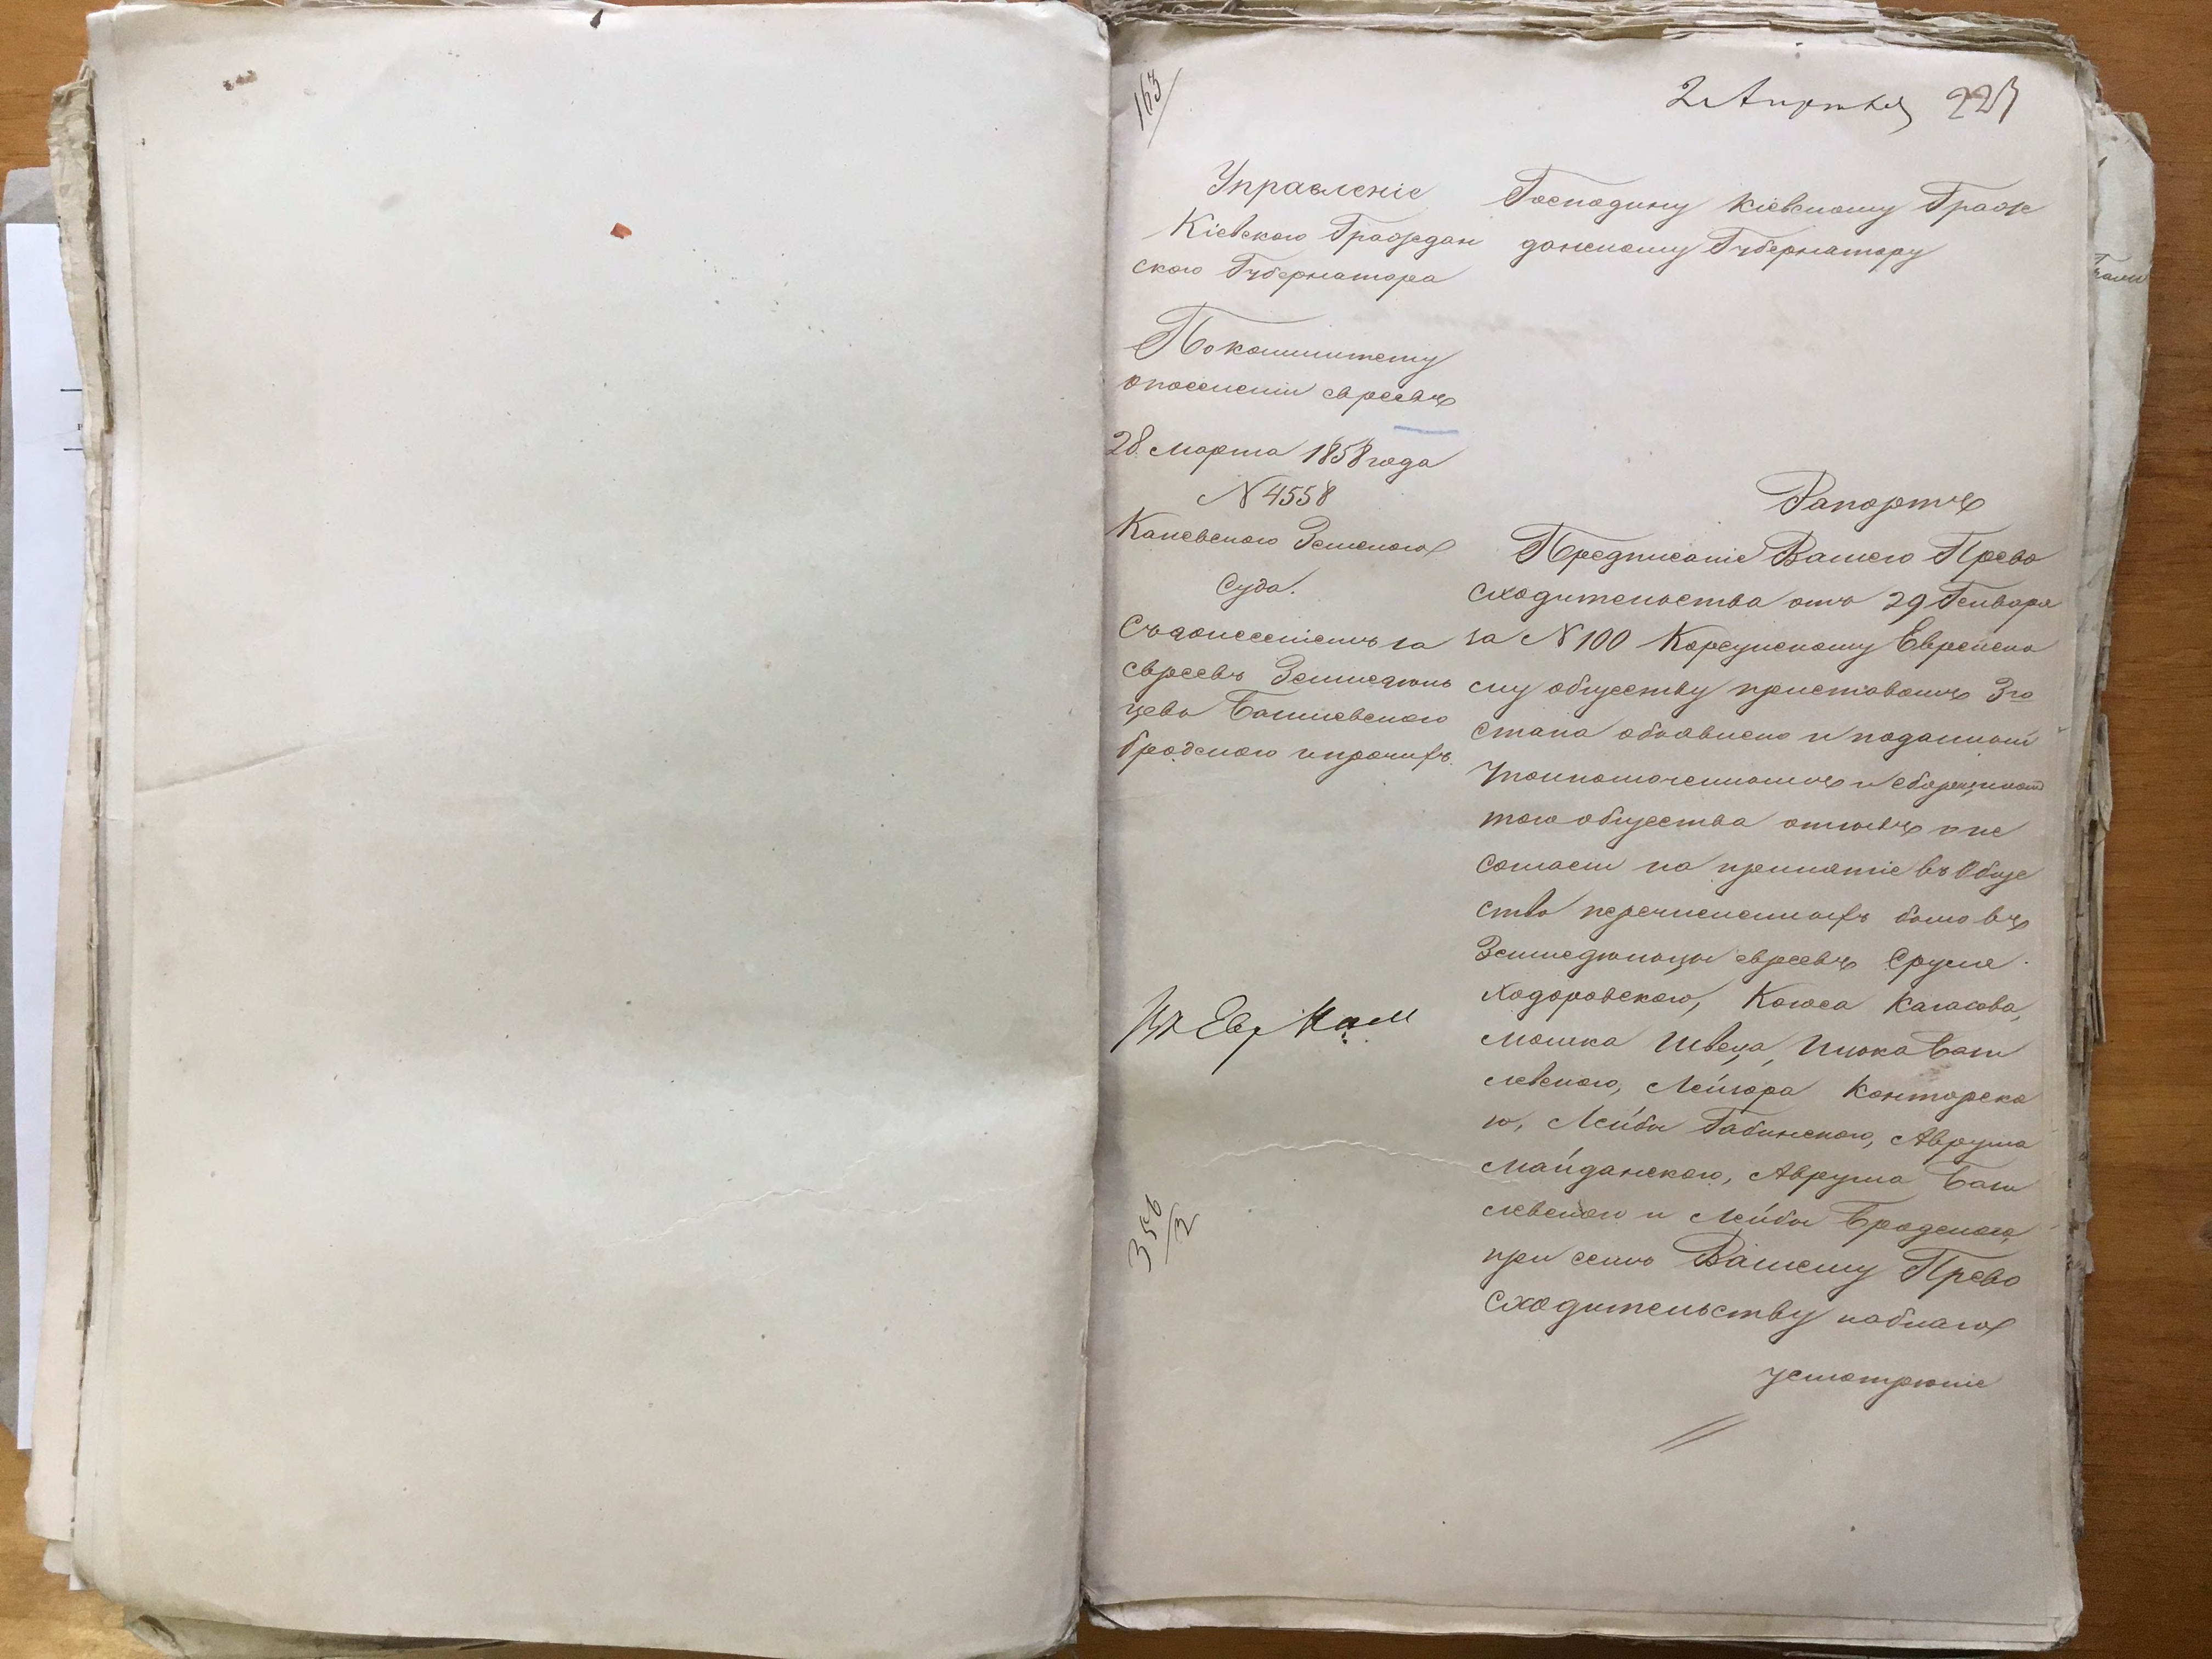 163
2 Апрѣля 227
Управленіе
Кіевскаго Граждан
скаго Губернатора
По комитету
о поселеніи евреевъ
28 Марта 1858 года
N 4558
Каневскаго Земскаго
Суда.
Съ донесеніемъ за
евреевъ Земледѣль
цевъ
Бродскаго и прочихъ.
356
Господину Кіевскому Граж
данскому Губернатору
Рапортъ
Предписаніе Вашего Прево
сходительства отъ 29 Генваря
за N 100 Корсунскому Еврейско
му обществу приставомъ 3го
стана объявлено и поданный
уполномоченнымъ и сборщикомъ
того общества отзывъ о не
согласіи на принятіе въ Обще
ство перечисленныхъ было въ
Земледѣльцы евреевъ Сруля
Ходоровскаго, Когоса Кагасова,
Мошка Швеца, Ицка Баш
левскаго, Лейзора Конторска
го, Лейбы Бабинскаго, Аврума
Майданскаго, Аврума Баш
левскаго и Лейбы Бродскаго,
при семъ Вашему Прево
сходительству на благо
усмотрѣніе